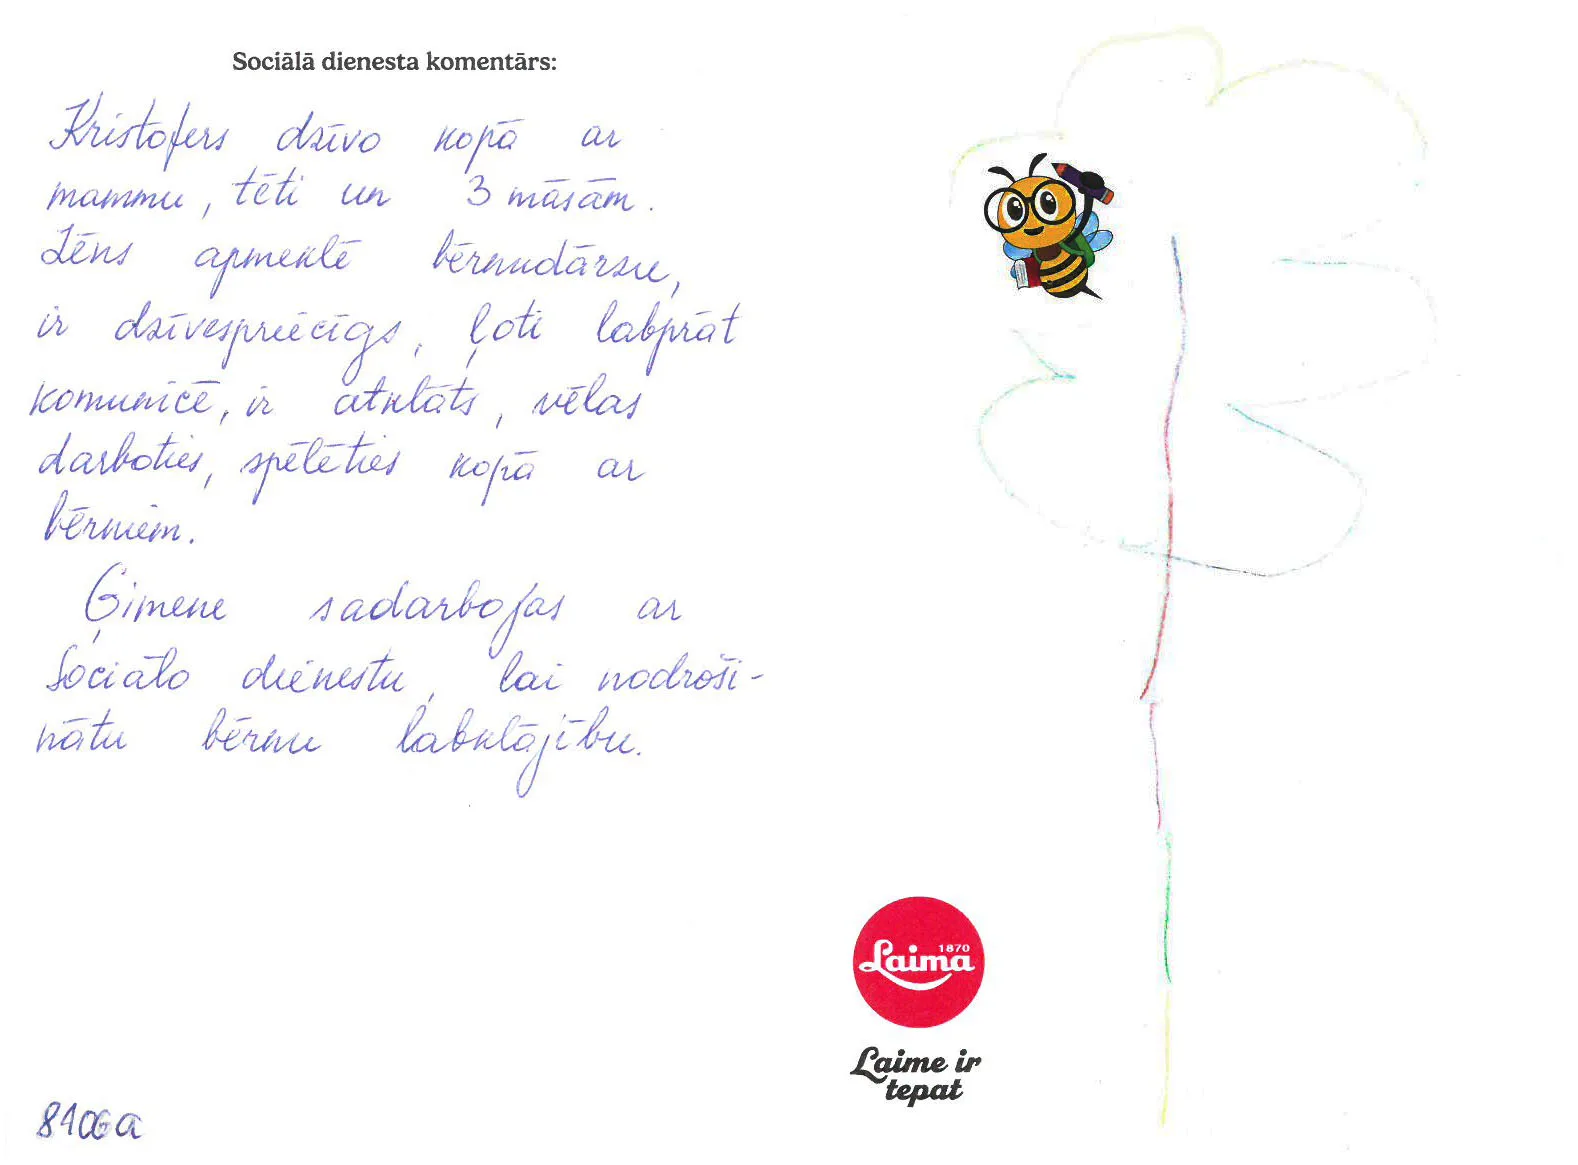 Sociālā dienesta komentārs:
Kristofers dzīvo kopā ar
mammu, tēti un 3 māsām.
Zēns apmeklē bērnudārzu,
ir dzīvespriecīgs, ļoti labprāt
komunicē, ir atklāts, vēlas
darboties, spēlēties kopā ar
bērniem.
Ģimene sadarbojas ar
Sociālo dienestu, lai nodroši-
nātu bērnu labklājību.
8406a
1870
Laima
Laime ir
tepat